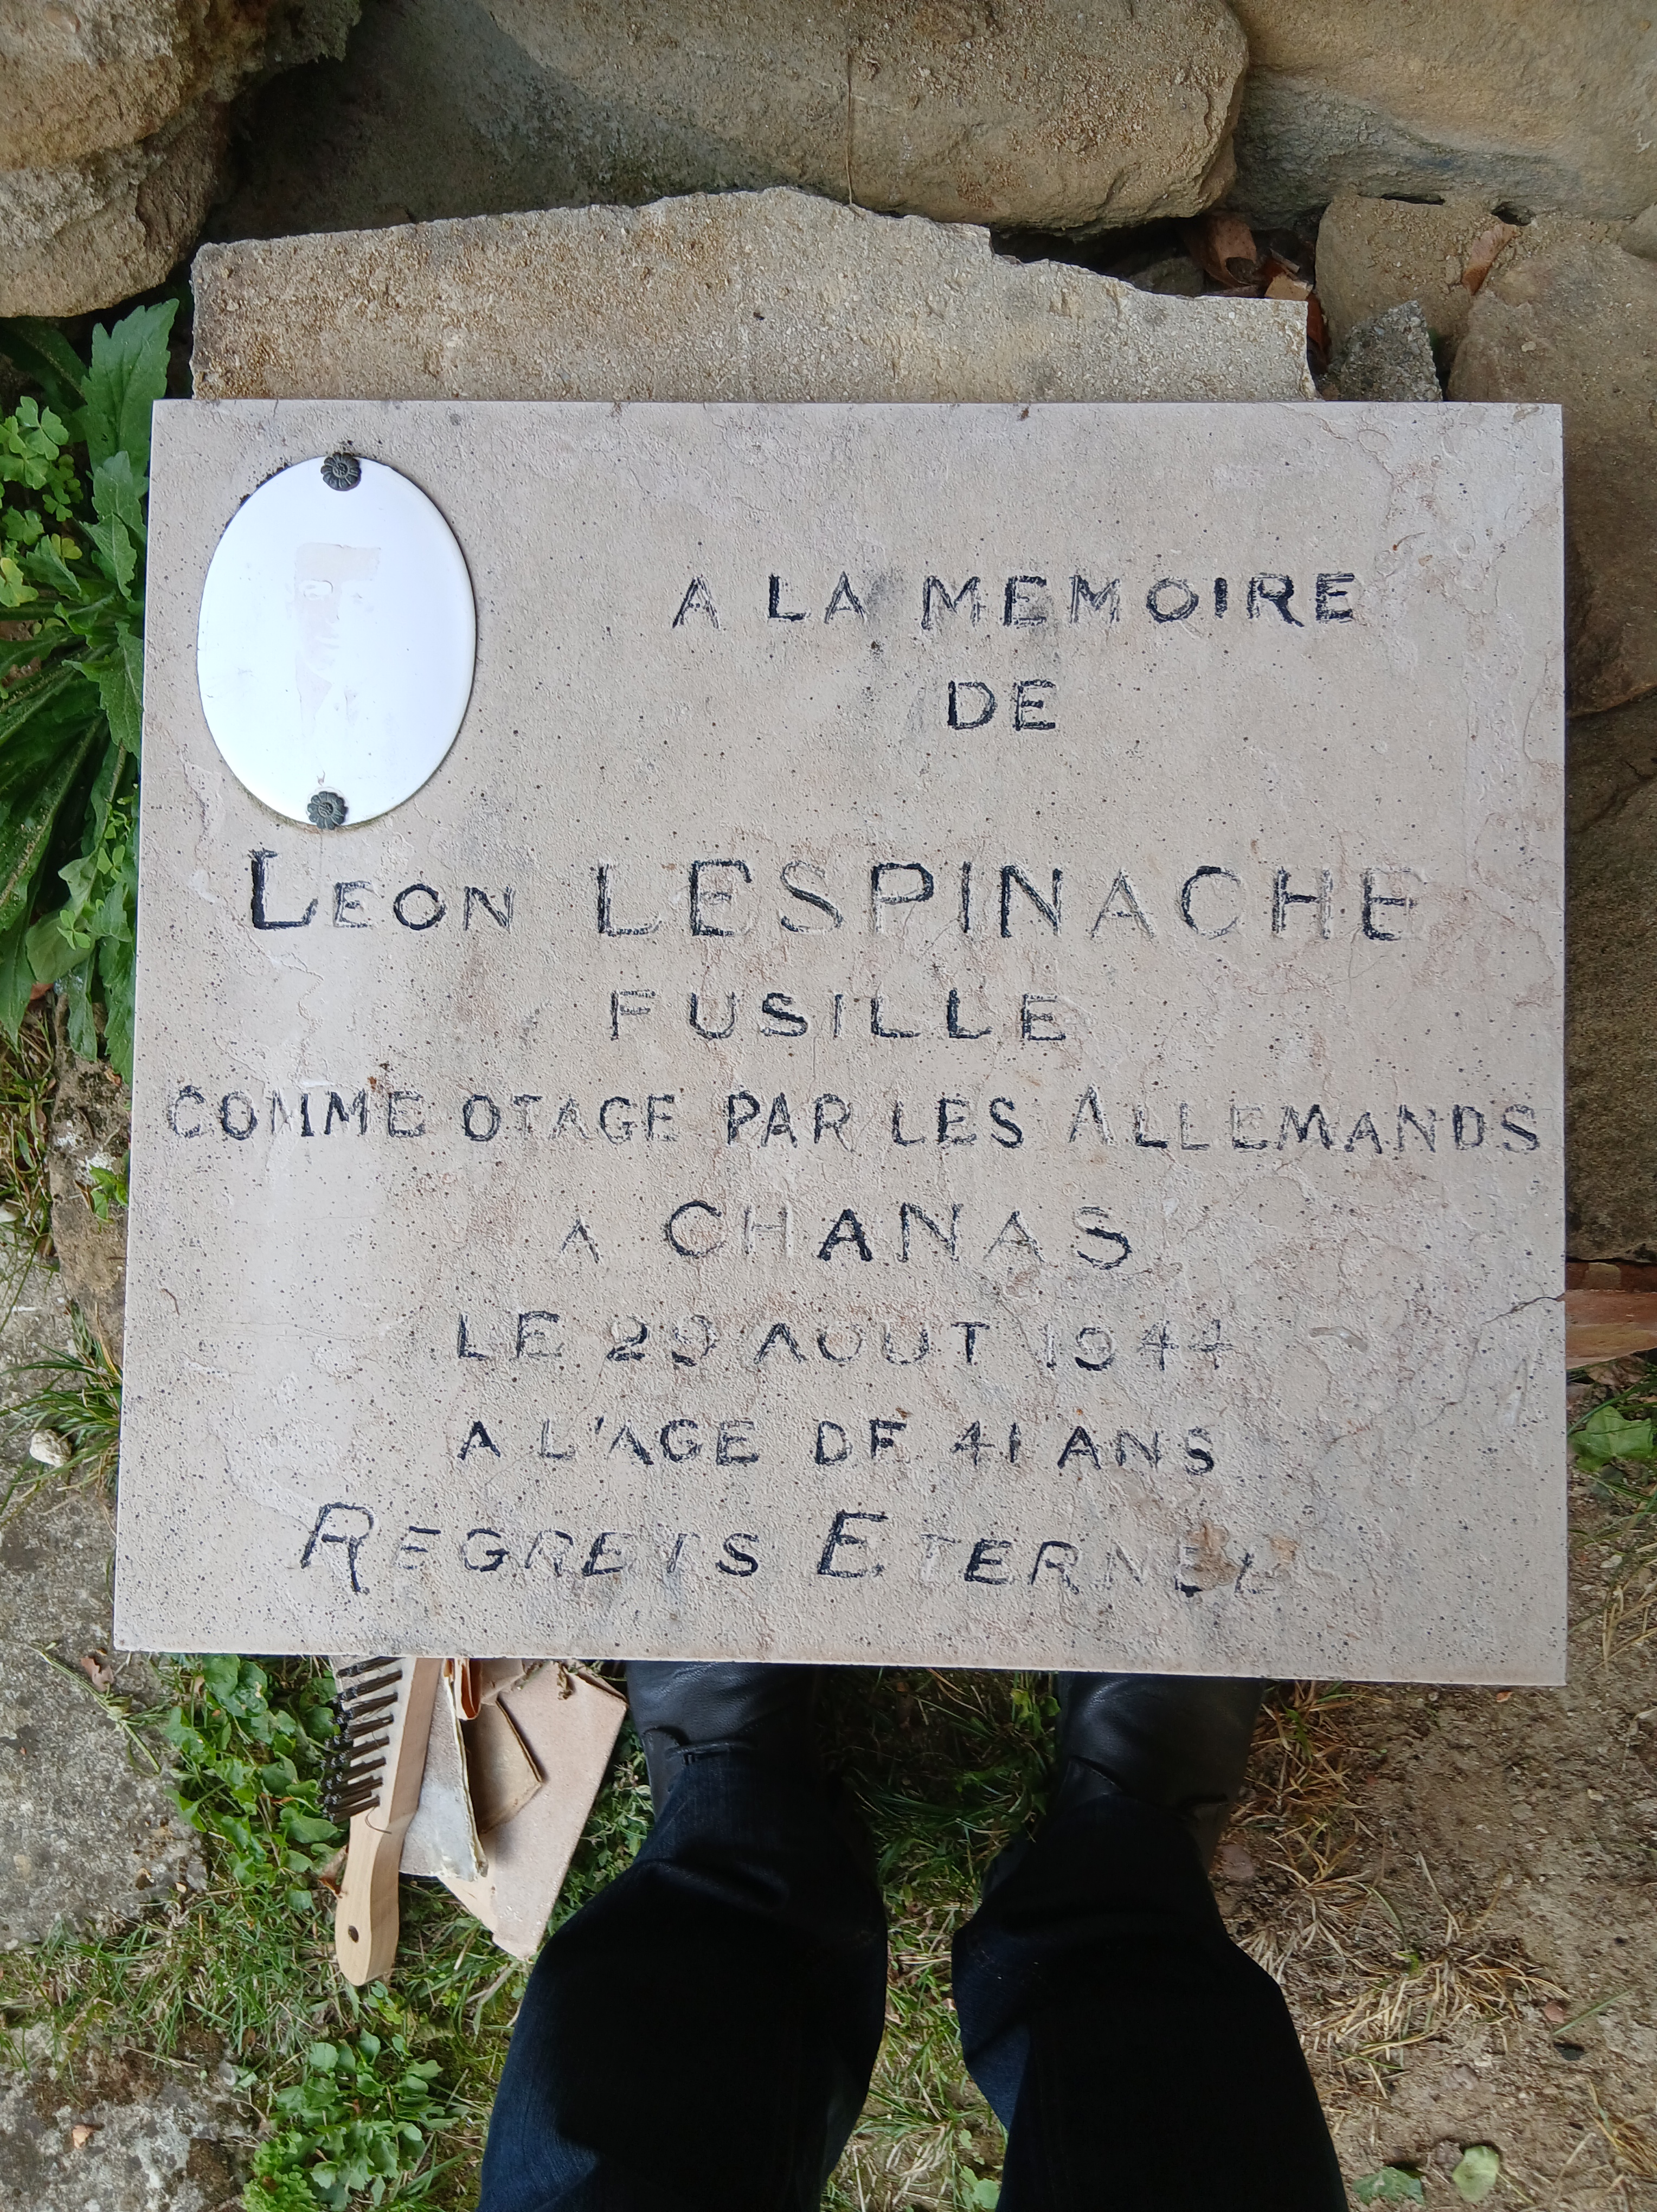 A LA MEMOIRE
DE
LEON LESPINACHE
FUSILLE
COMME OTAGE PAR LES ALLEMANDS
A CHANAS
LE 29 AOUT 1944
A L'AGE DE 41 ANS
REGRETS ETERNEL